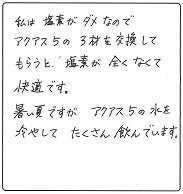 私は 塩素が ダメ なので
アクアス5の ろ材を交換して
もらうと、塩素が 全くなくて
快適です。
暑い夏ですが アクアス5の水を
冷やして たくさん 飲んでいます。